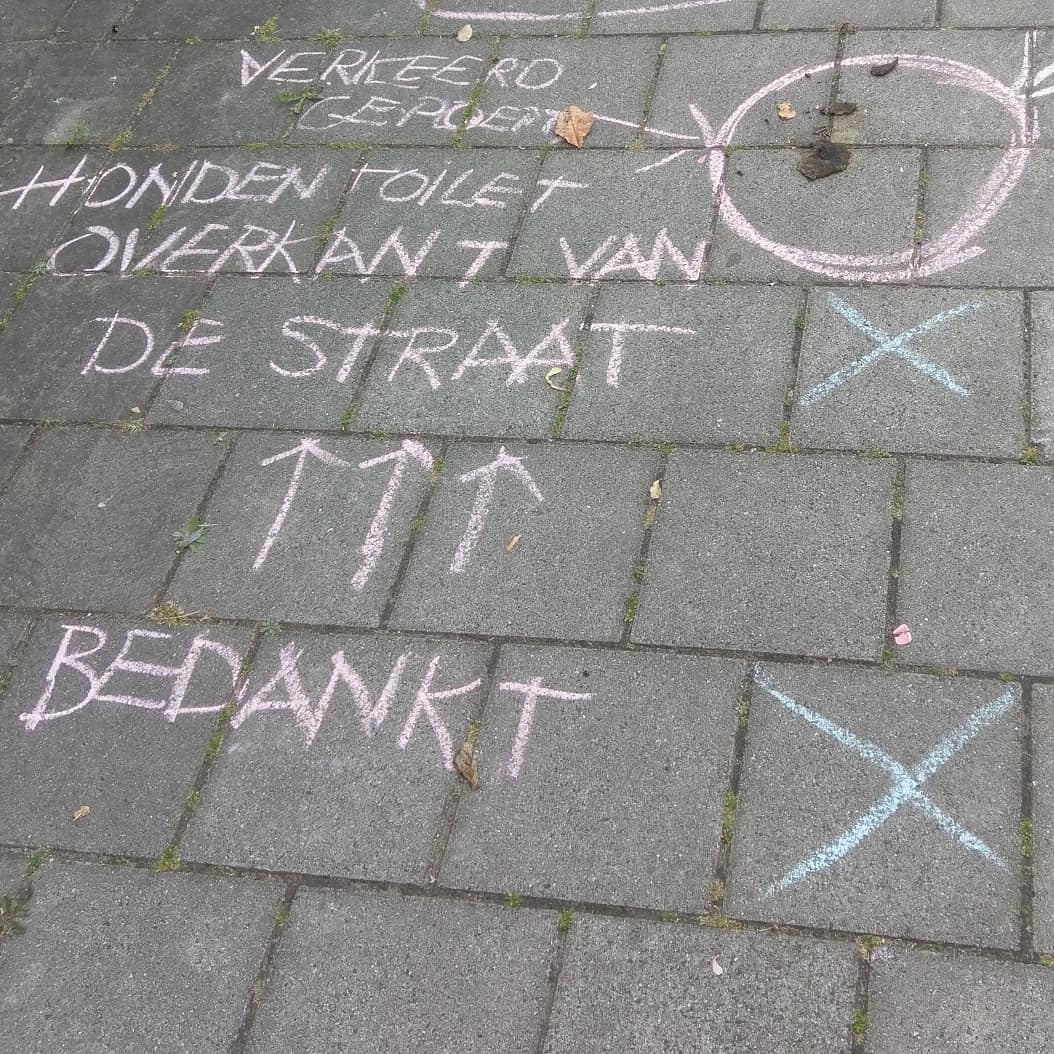 VERKEERD
GEPOEPT
HONDEN TOILET
OVERKANT VAN
DE STRAAT
BEDANKT